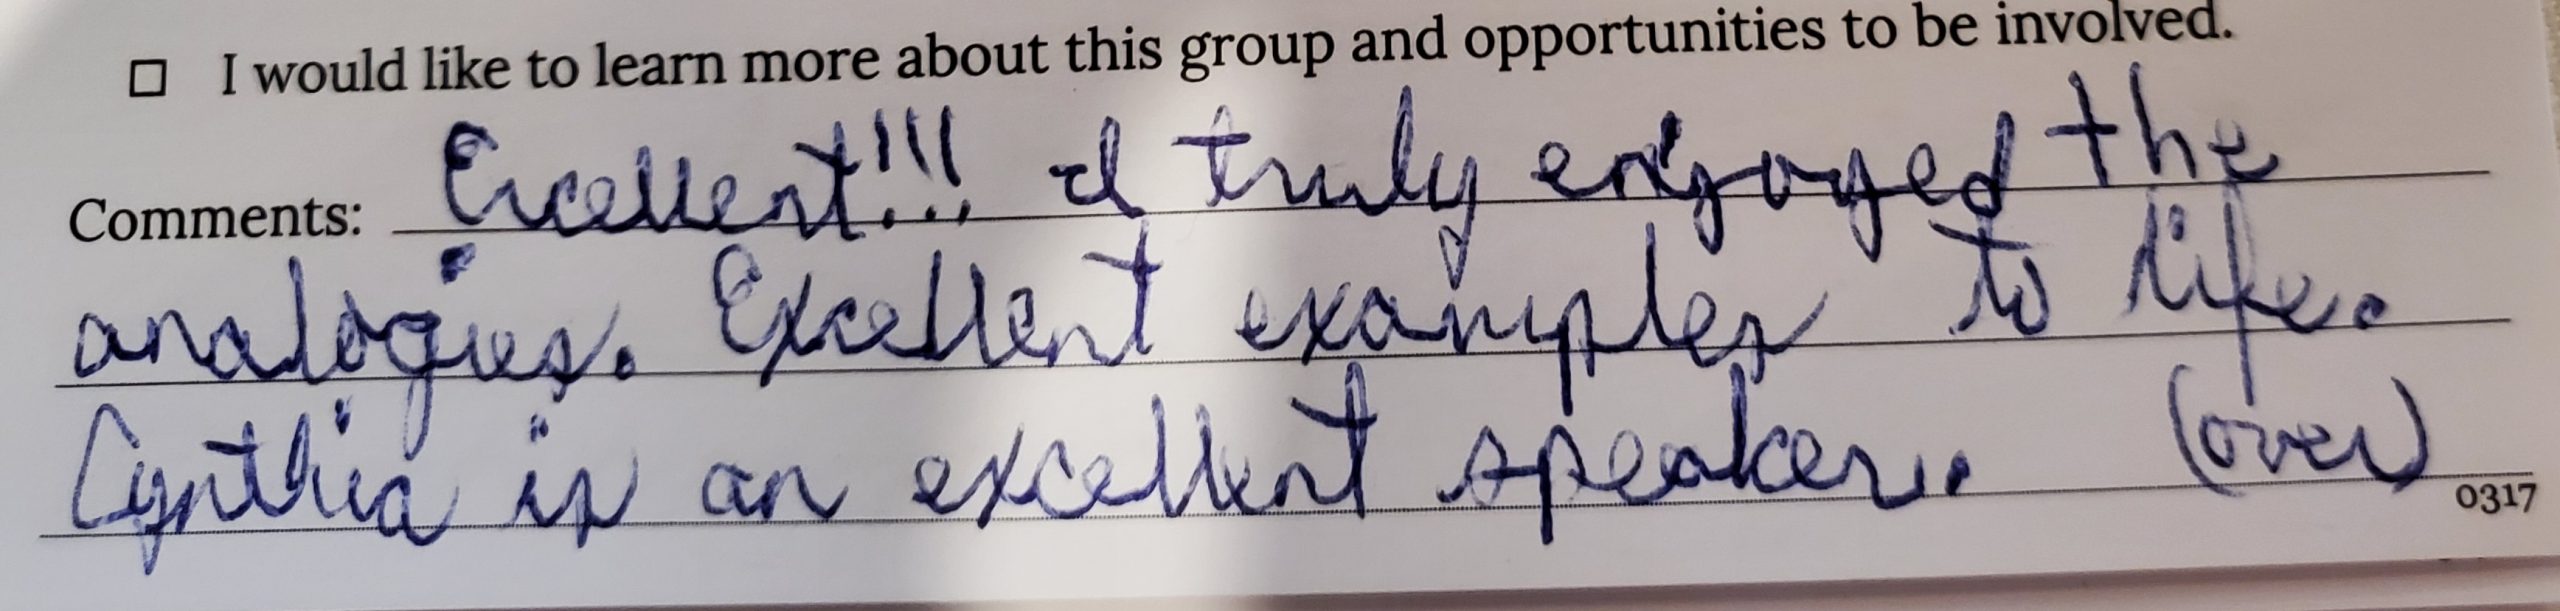 ☐ I would like to learn more about this group and opportunities to be involved.
Comments: Excellent!!! I truly enjoyed the
analogies. Excellent examples to life.
Cynthia is an excellent speaker. (over)
0317